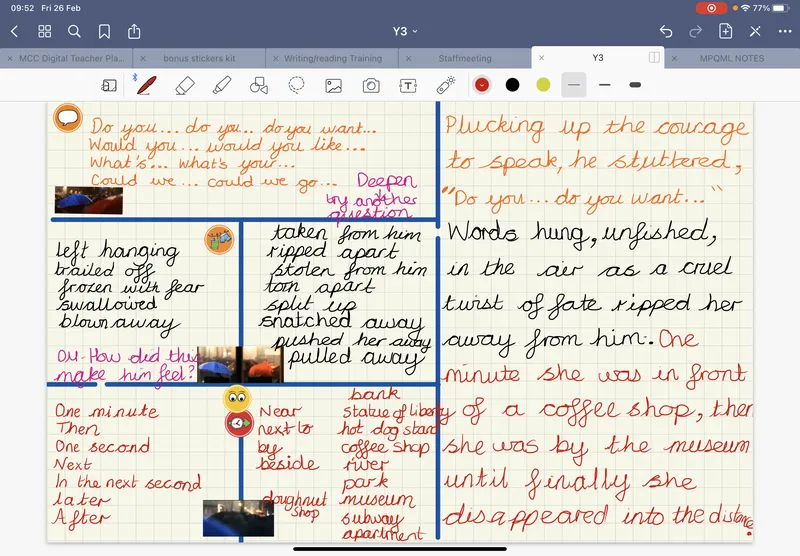 09:52 Fri 26 Feb
77%
Y3
MCC Digital Teacher Pla...
bonus stickers kit
Writing/reading Training
Staffmeeting
Y3
MPQML NOTES
Do you... do you... do you want...
Would you... would you like...
What's... what's your...
Could we... could we go...
Deepen
try another
question
left hanging
trailed off
frozen with fear
swallowed
blown away
OU-How did this
make him feel?
taken from him
ripped apart
stolen from him
torn apart
split up
snatched away
pushed her away
pulled away
One minute
Then
One second
Next
In the next second
later
After
Near
next to
by
beside
doughnut
shop
bank
statue of liberty
hot dog stand
coffee shop
river
park
museum
subway
apartment
Plucking up the courage
to speak, he stuttered,
"Do you... do you want..."
Words hung, unfished,
in the air as a cruel
twist of fate ripped her
away from him. One
minute she was in front
of a coffee shop, then
she was by the museum
until finally she
disappeared into the distance.